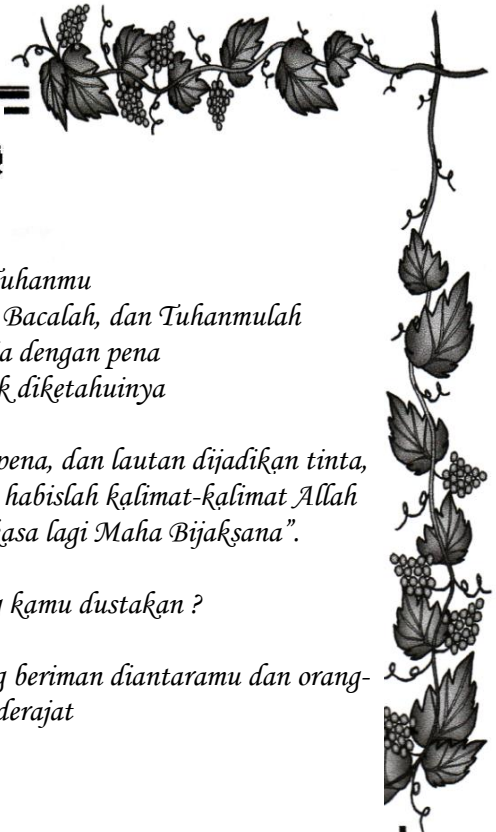 Tuhanmu
Bacalah, dan Tuhanmulah
dengan pena
diketahuinya
pena, dan lautan dijadikan tinta,
habislah kalimat-kalimat Allah
lagi Maha Bijaksana”.
kamu dustakan ?
beriman diantaramu dan orang-
derajat